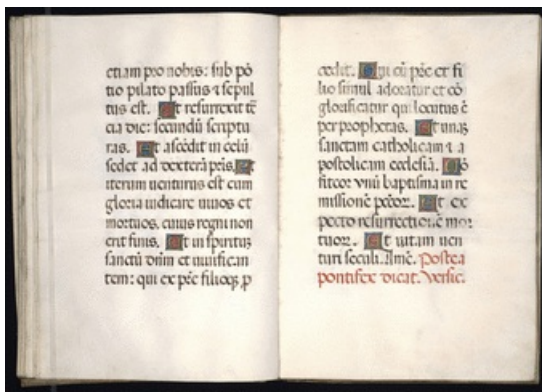 etiam pro nobis: sub pō
tio pilato passus ⁊ sepul
tus est. Et resurrexit tē
cia die: secundū scriptu
ras. Et ascēdit in celū
sedet ad dexterā pr̄is. Et
iterum uenturus est cum
gloria iudicare uiuos et
mortuos, cuius regni non
erit finis. Et in spiritus
sanctū dn̄m et uiuifican
tem: qui ex pr̄e filioq̄ ꝓ
cedit. Qui cū pr̄e et fi
lio simul adoratur et cō
glorificatur qui locutus ē
per prophetas. Et unaȝ
sanctam catholicam ⁊ a
postolicam ecclesiā. Cō
fiteor vnū baptisma in re
missionē pctōꝝ. Et ex
pecto resurrectionē mor
tuoꝝ. Et uitam uen
turi seculi. Amē. Postea
pontifex dicat. Versic.